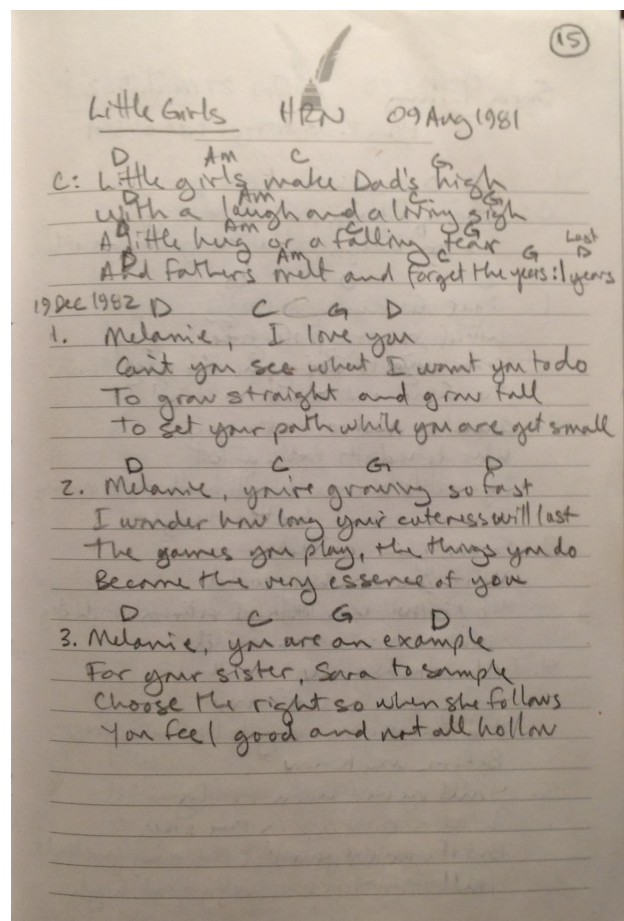 15
Little Girls HRN 09 Aug 1981
D Am C G
C: Little girls make Dad's high
D Am C G
with a laugh and a living sigh
D Am C G
A little hug or a falling tear Last
D Am C G D
And fathers melt and forget the years :| years
19 Dec 1982 D C G D
1. Melanie, I love you
Can't you see what I want you to do
To grow straight and grow tall
To set your path while you are yet small
D C G D
2. Melanie, you're growing so fast
I wonder how long your cuteness will last
The games you play, the things you do
Become the very essence of you
D C G D
3. Melanie, you are an example
For your sister, Sara to sample
Choose the right so when she follows
You feel good and not all hollow